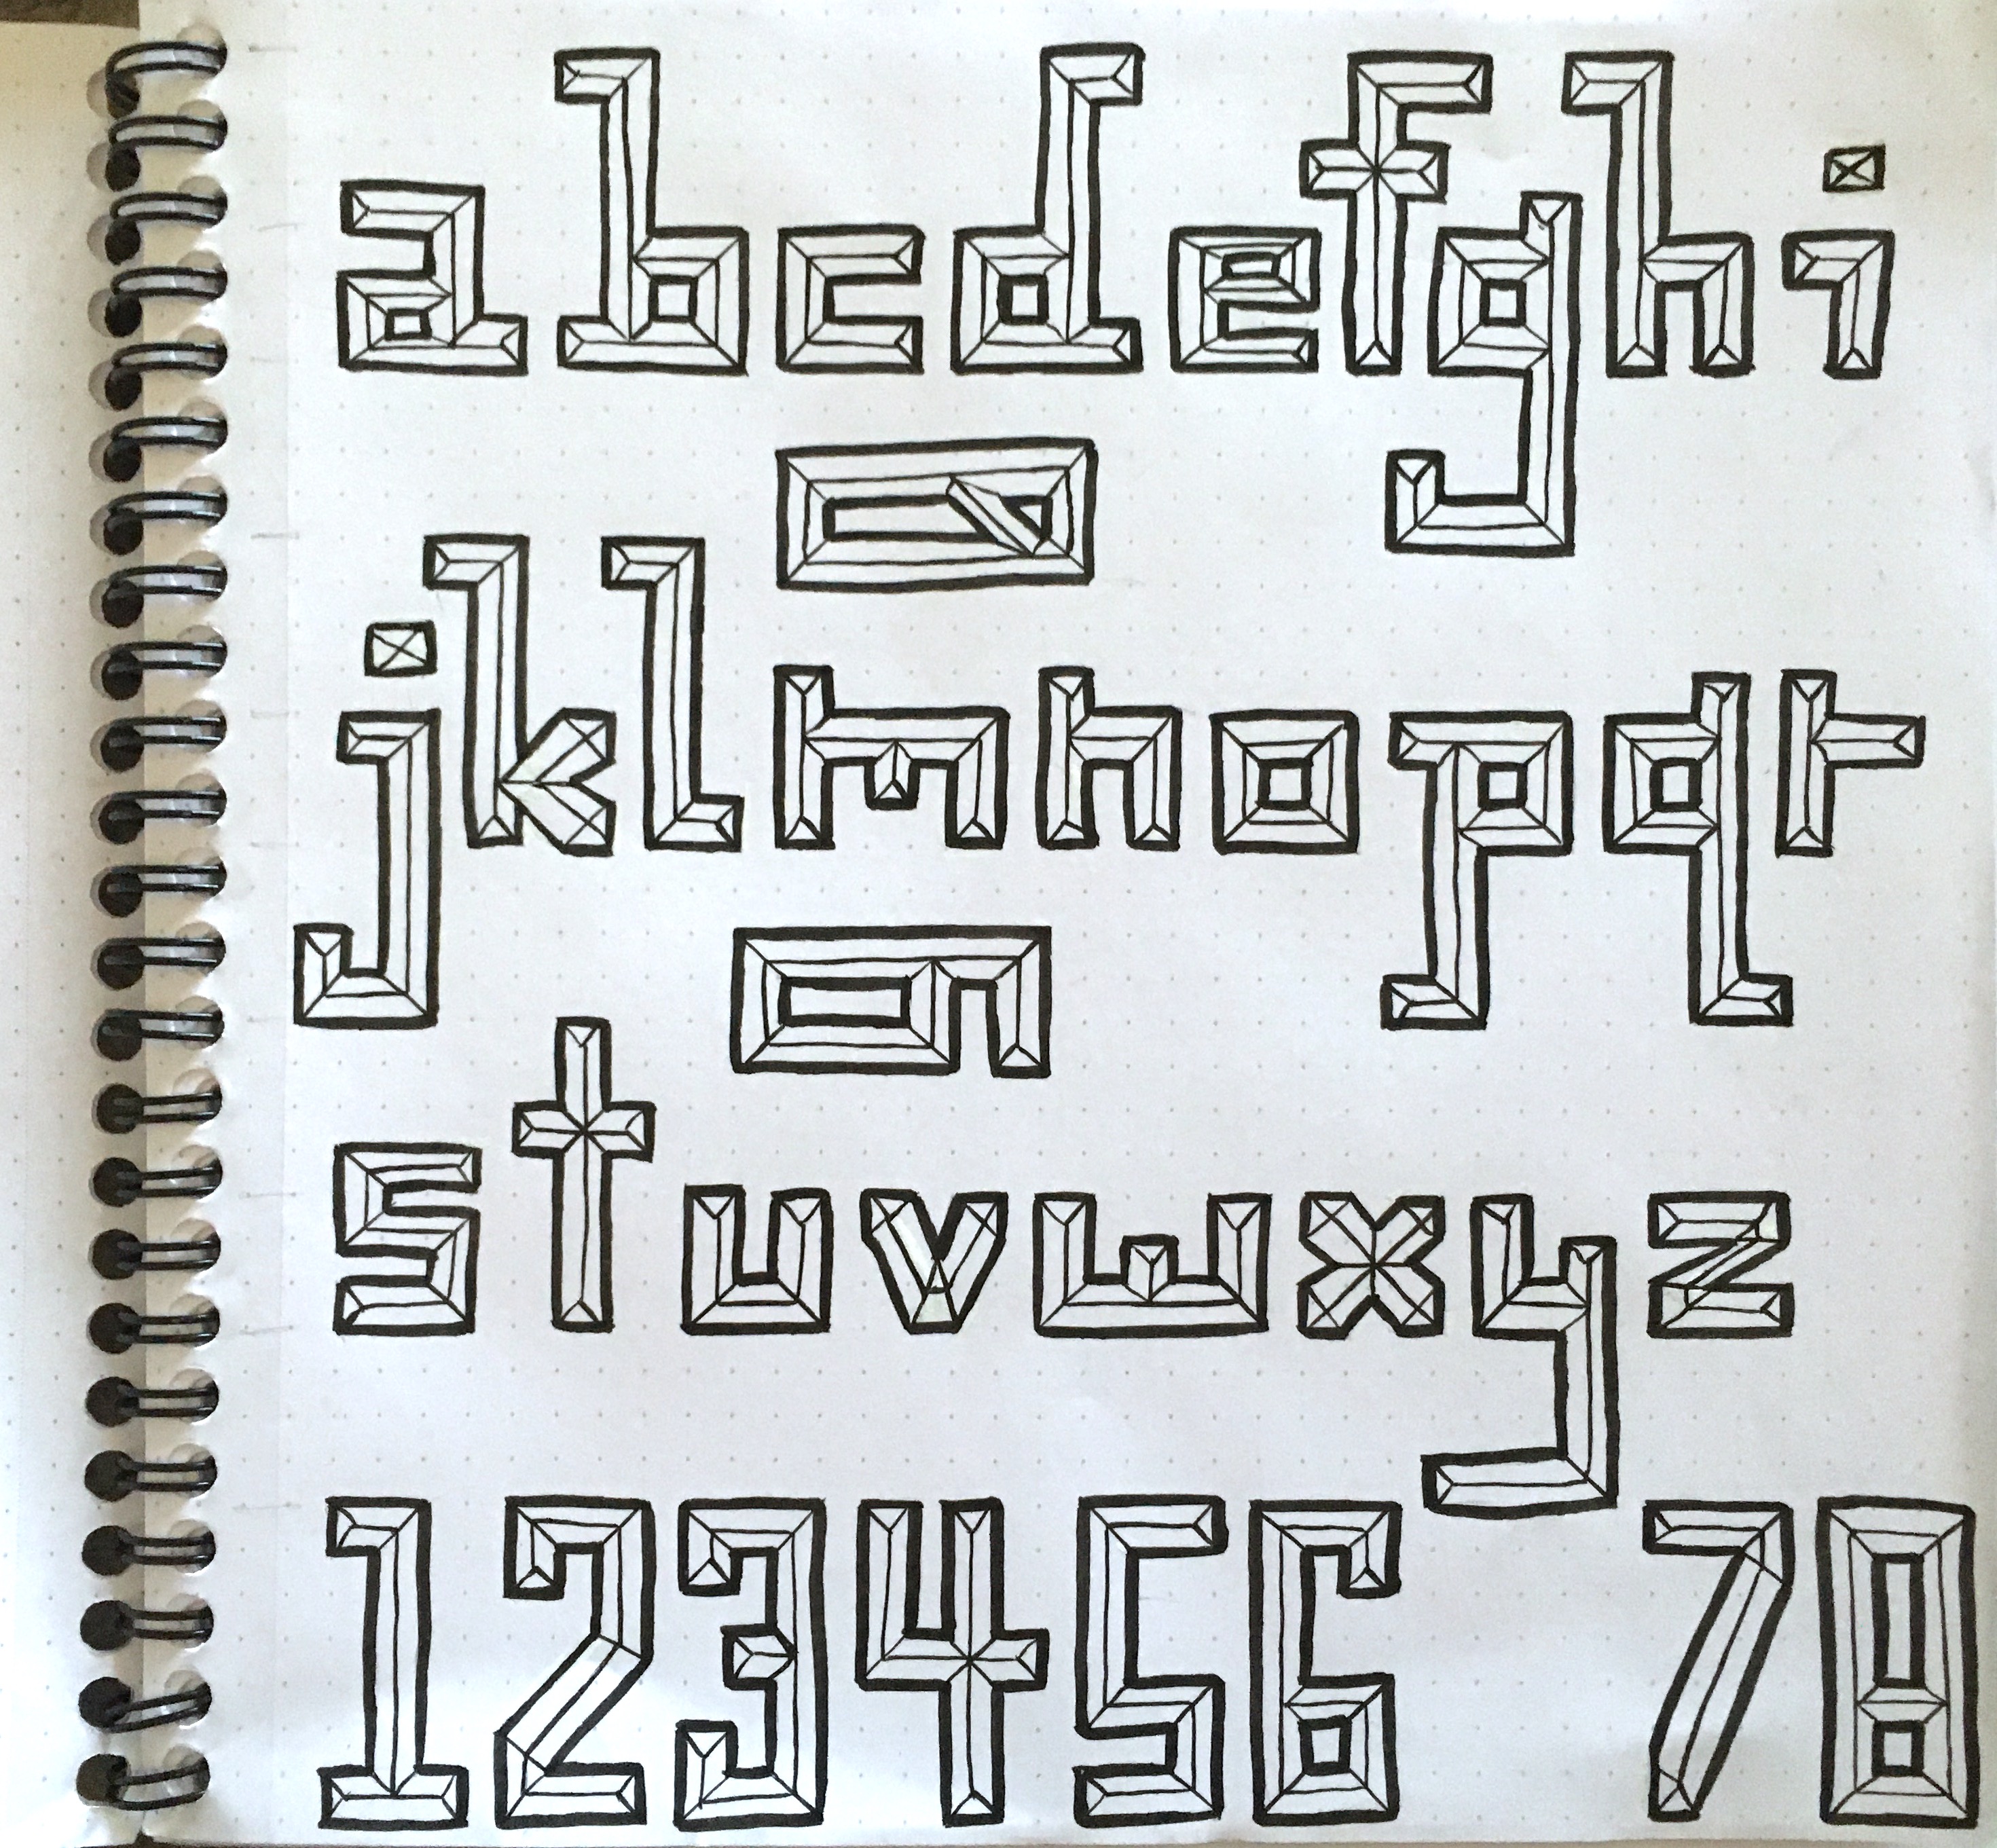 abcdefghi
0
jklmnopqr
9
stuvwxyz
12345678